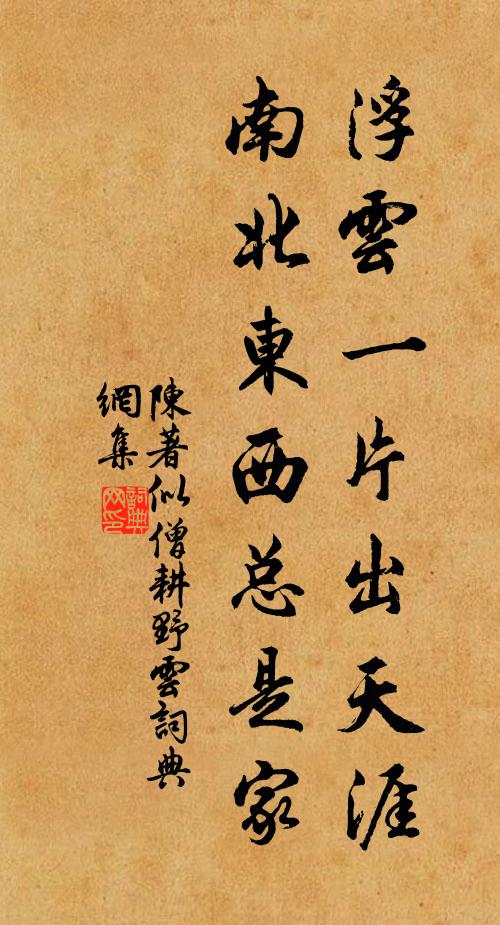 浮雲一片出天涯
南北東西总是家
陳著似僧耕野雲詞典
網集
詞典網印